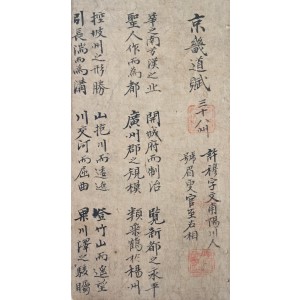 京畿道賦 三十八州
許穆字文甫陽川人
號眉叟官至右相
華之南兮漢之北 開城府而制治 覽新都之永平
聖人作而為都 廣州郡之規模 類 於楊州
控坡州之形勝 山抱川而 登竹山而遙望
引長湍而為溝 川交河而屈曲 果川澤之